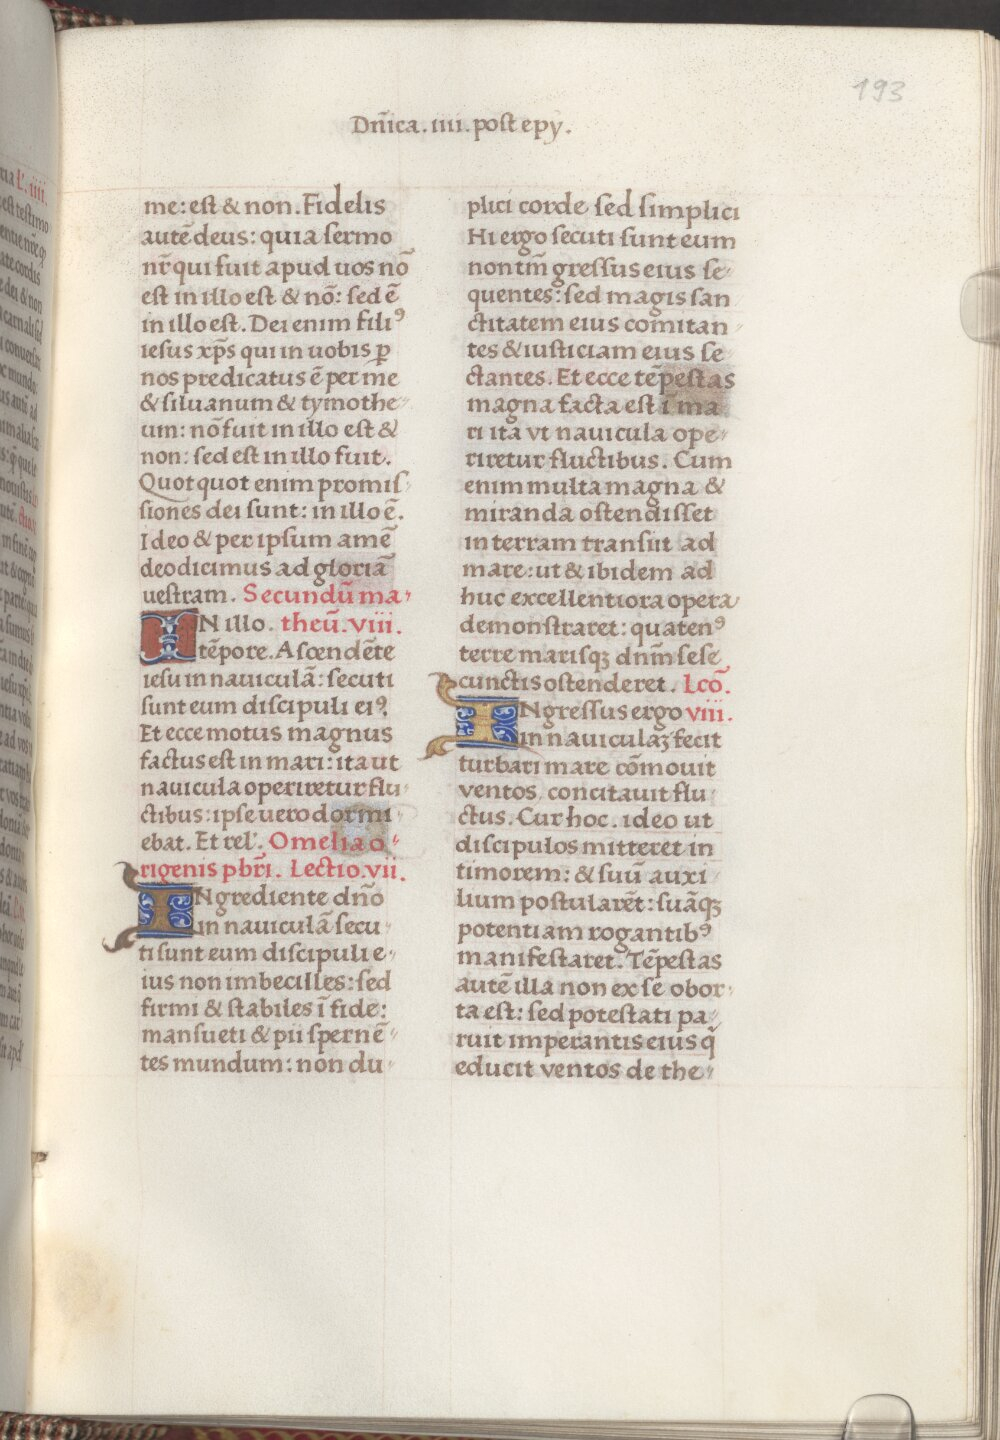 193
Dn̄ica . iiii . post epy .
me : est & non . Fidelis
autē deus : quia sermo
nr̄ qui fuit apud uos nō
est in illo est & nō : sed ē
in illo est . Dei enim filiꝰ
iesus xp̄s qui in uobis ꝑ
nos predicatus ē per me
& siluanum & tymothe
um : nō fuit in illo est &
non : sed est in illo fuit .
Quotquot enim promis
siones dei sunt : in illo ē .
Ideo & per ipsum amē
deo dicimus ad gloriā
uestram . Secundū ma
IN illo . theū . viii .
tēpore . Ascendēte
iesu in nauiculā : secuti
sunt eum discipuli eiꝰ .
Et ecce motus magnus
factus est in mari : ita ut
nauicula operiretur flu
ctibus : ipse uero dormi
ebat . Et rel' . Omelia o
rigenis pbr̄i . Lectio . vii .
INgrediente dn̄o
in nauiculā secu
ti sunt eum discipuli e
ius non imbecilles : sed
firmi & stabiles ī fide :
mansueti & pii spernē
tes mundum : non du
plici corde sed simplici
Hi ergo secuti sunt eum
non tm̄ gressus eius se
quentes : sed magis san
ctitatem eius comitan
tes & iusticiam eius se
ctantes . Et ecce tēpestas
magna facta est ī ma
ri ita vt nauicula ope
riretur fluctibus . Cum
enim multa magna &
miranda ostendisset
in terram transiit ad
mare : ut & ibidem ad
huc excellentiora opera
demonstraret : quatenꝰ
terre marisqꝫ dn̄m sese
cunctis ostenderet . Lcō .
INgressus ergo viii .
in nauiculaꝫ fecit
turbari mare cōmouit
ventos concitauit flu
ctus . Cur hoc . ideo ut
discipulos mitteret in
timorem : & suū auxi
lium postularēt : suāqꝫ
potentiam rogantibꝰ
manifestaret . Tēpestas
autē illa non ex se obor
ta est : sed potestati pa
ruit imperantis eius q̄
educit ventos de the